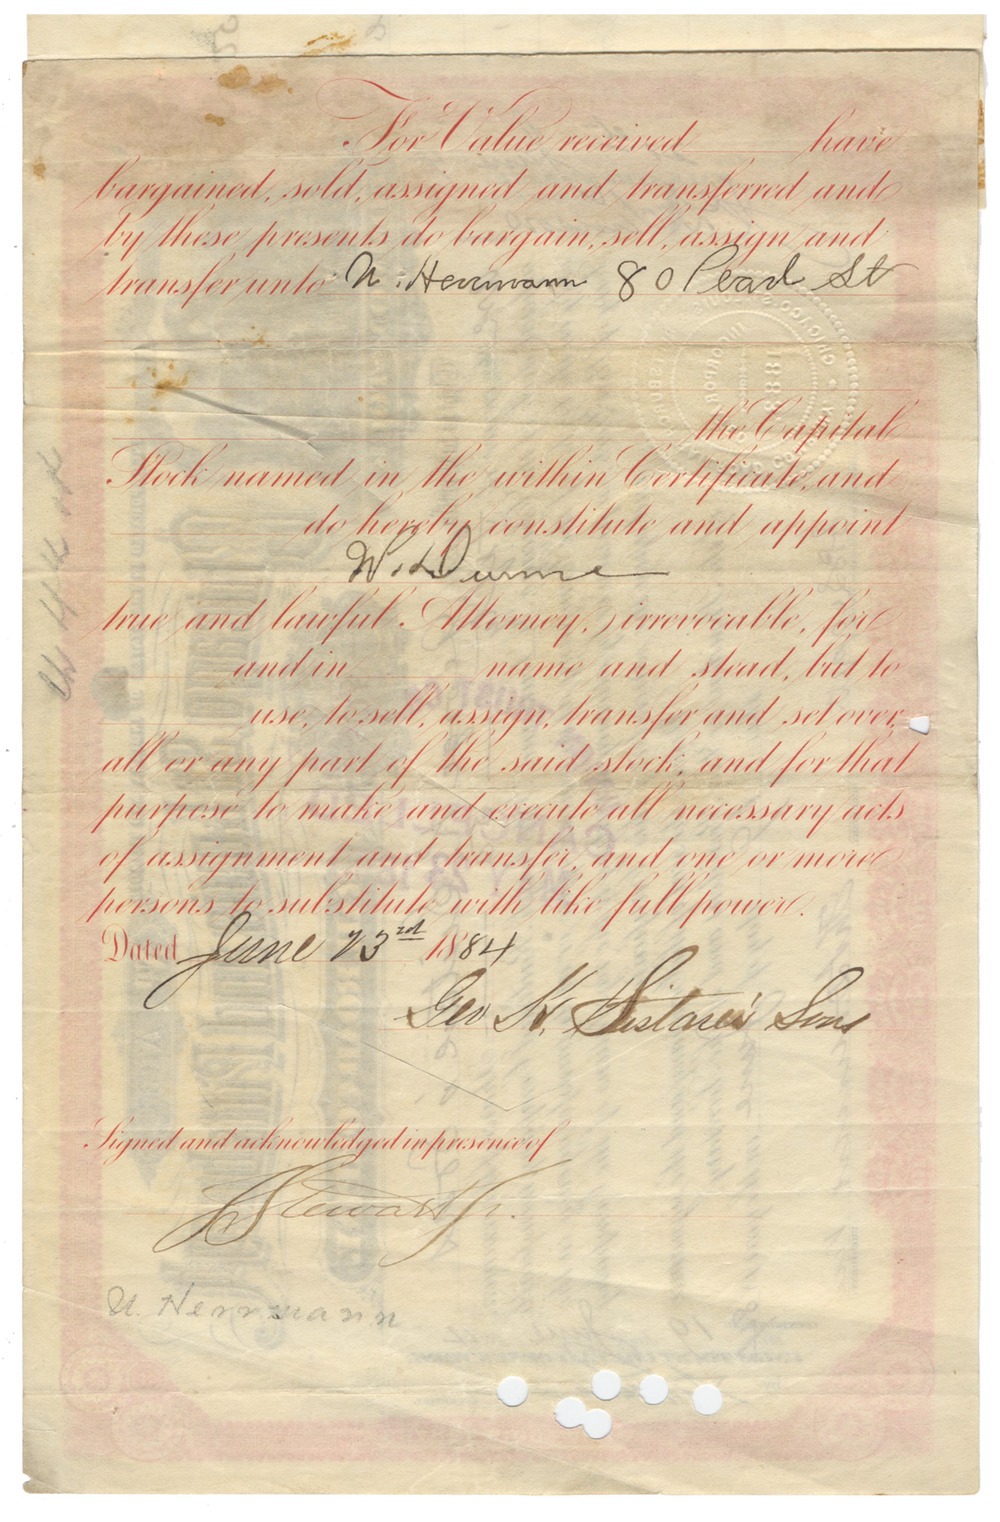 For Value received have
bargained, sold, assigned and transferred and
by these presents do bargain, sell, assign and
transfer unto U. Herrmann 80 Pearl St
the Capital
Stock named in the within Certificate, and
do hereby constitute and appoint
true and lawful Attorney, irrevocable, for
and in name and stead, but to
use, to sell, assign, transfer and set over,
all or any part of the said stock, and for that
purpose to make and execute all necessary acts
of assignment and transfer, and one or more
persons to substitute with like full power.
Dated June 23rd 1884
Geo K. Sistare's Sons
Signed and acknowledged in presence of
J Stewart Jr.
U. Herrmann